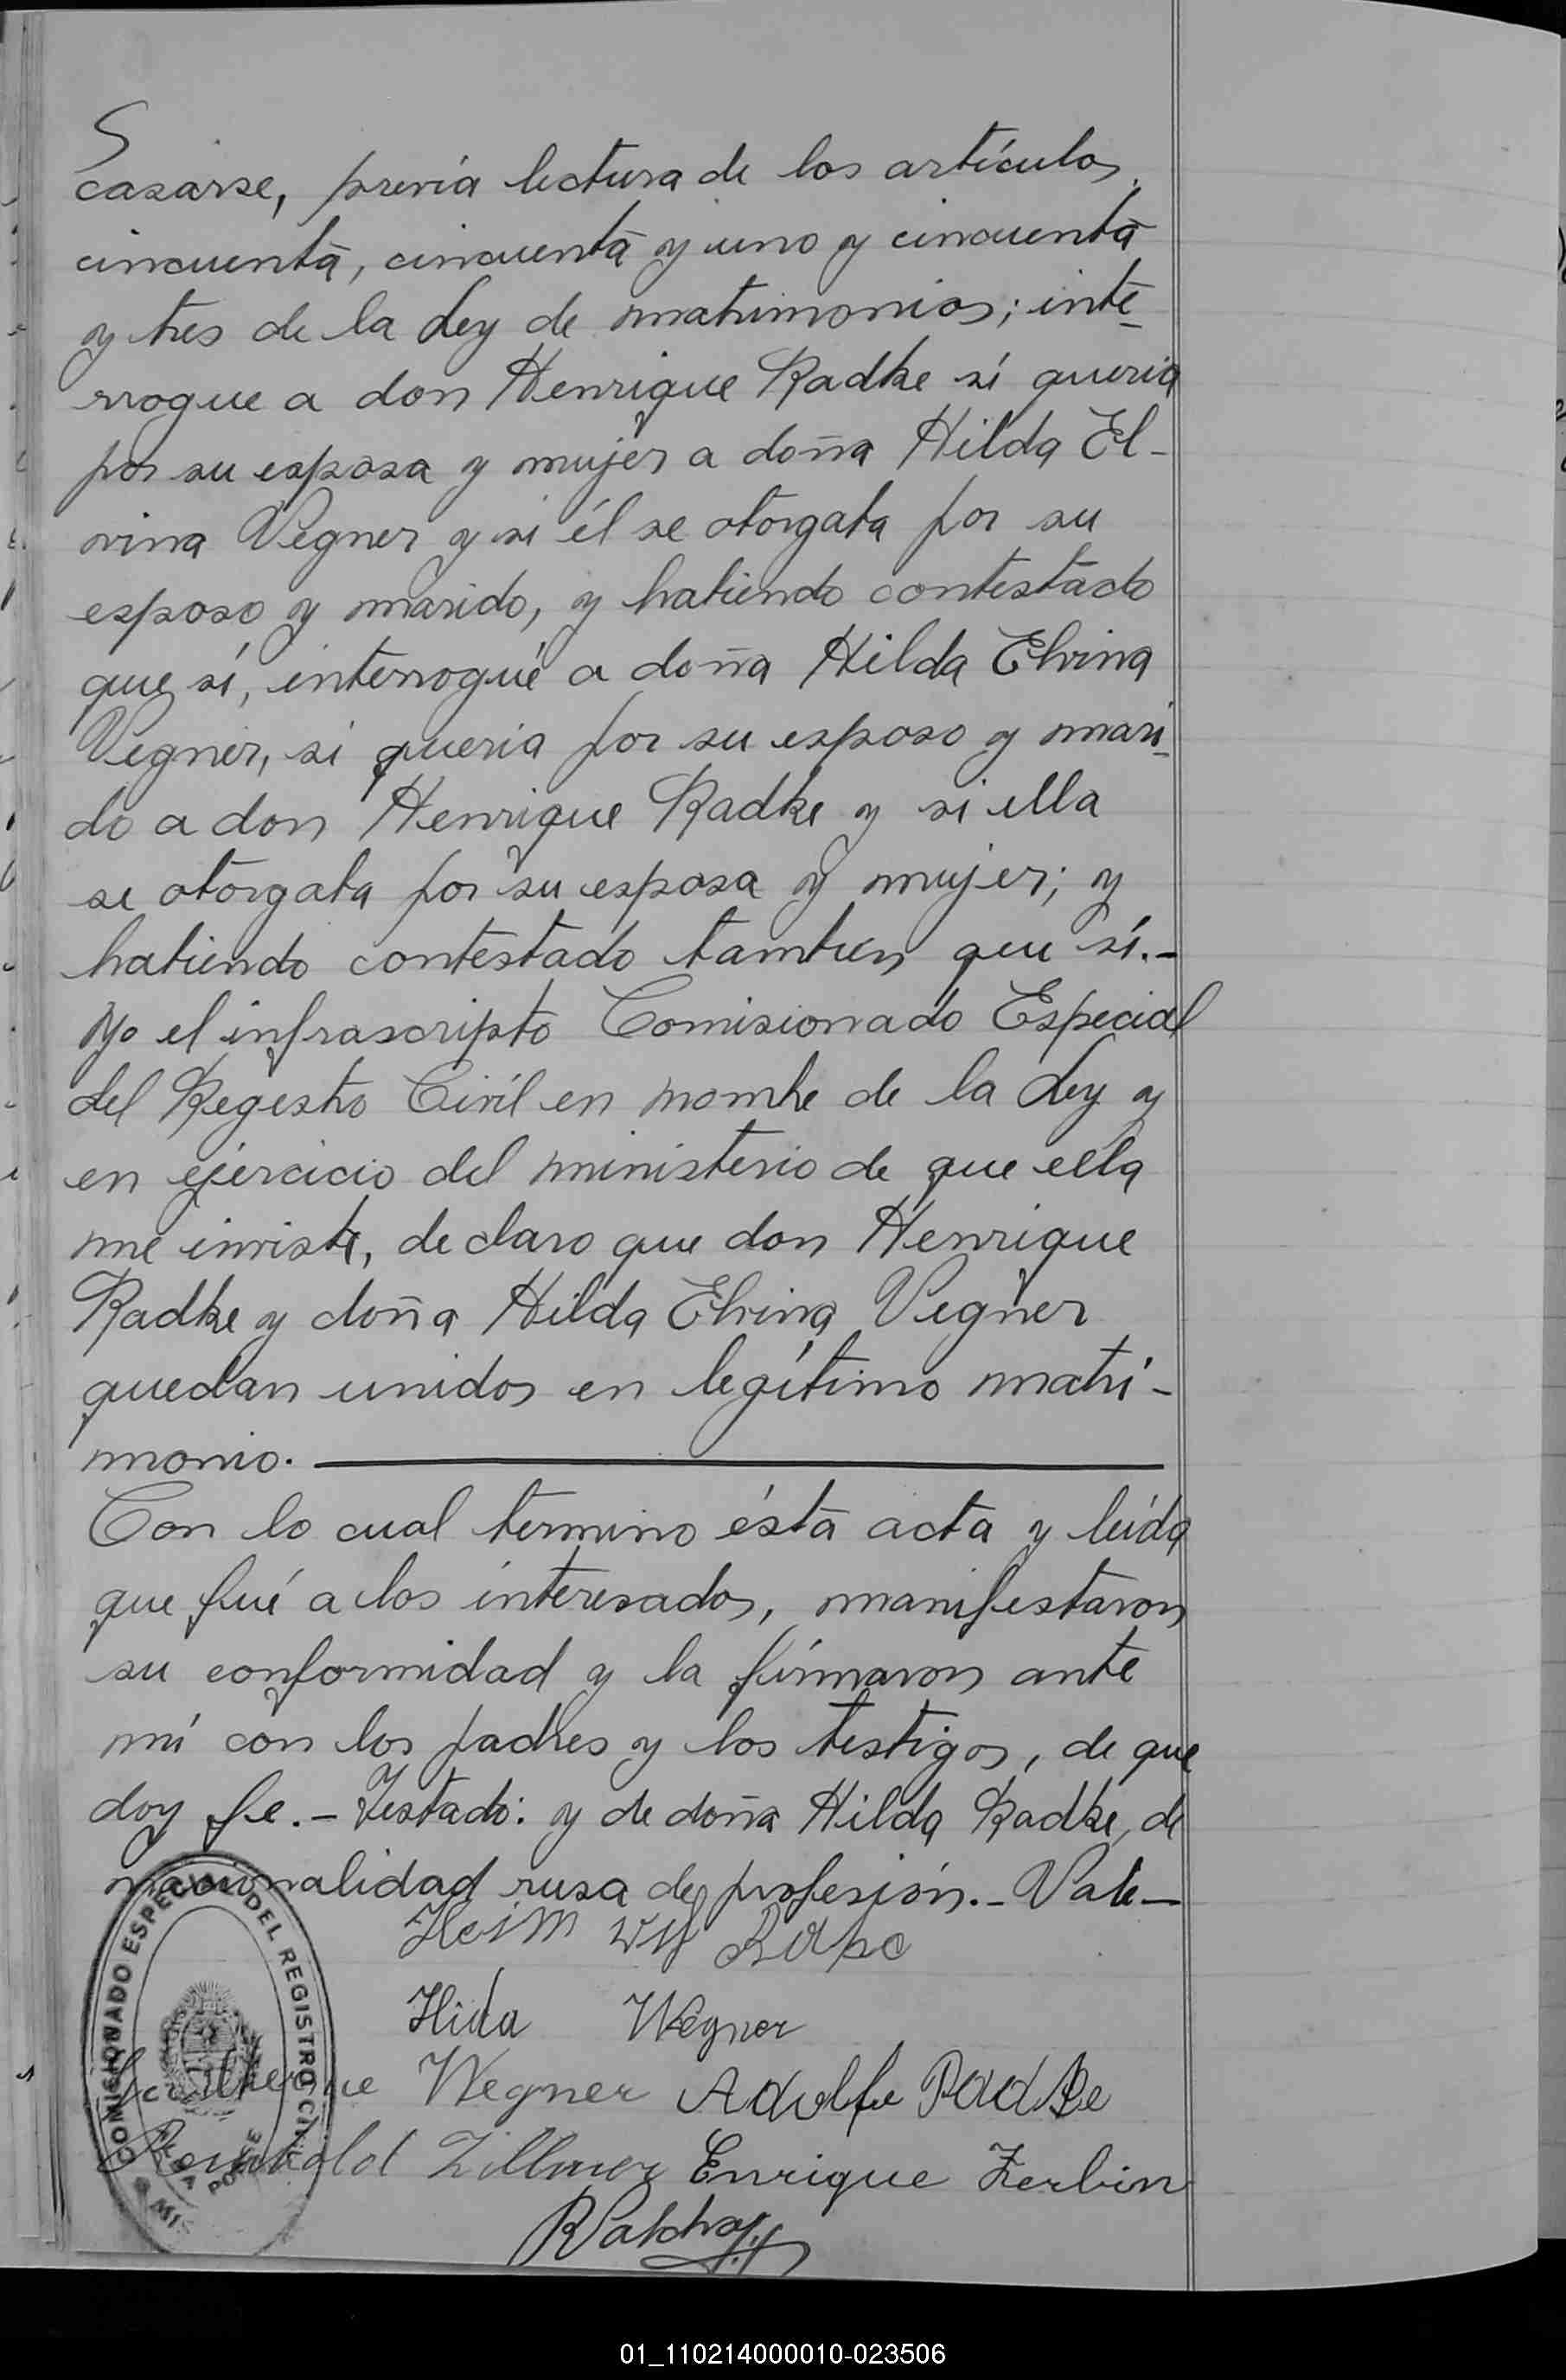 casarse, previa lectura de los artículos
cincuenta, cincuenta y uno y cincuenta
y tres de la Ley de matrimonios; inte-
rrogue a don Henrique Radke si queria
por su esposa y mujer a doña Hilda El-
vina Vegner y si él se otorgaba por su
esposo y marido, y habiendo contestado
que sí, interrogué a doña Hilda Elvina
Vegner, si queria por su esposo y mari-
do a don Henrique Radke y si ella
se otorgaba por su esposa y mujer; y
habiendo contestado tambien que sí.-
Yo el infrascripto Comisionado Especial
del Registro Civíl en nombre de la Ley y
en ejercicio del ministerio de que ella
me inviste, declaro que don Henrique
Radke y doña Hilda Elvina Vegner
quedan unidos en legítimo matri-
monio.
Con lo cual termino ésta acta y leída
que fué a los interesados, manifestaron
su conformidad y la fírmaron ante
mí con los padres y los testigos, de que
doy fe.- Testado: y de doña Hilda Radke, de
nacionalidad rusa de profesión.- Vale-
Hida Wegner
Wegner Adolfo Radke
Reinhold Zillmer Enrique Zerbin
COMISIONADO ESPECIAL DEL REGISTRO CIVIL
MIS
01_110214000010-023506